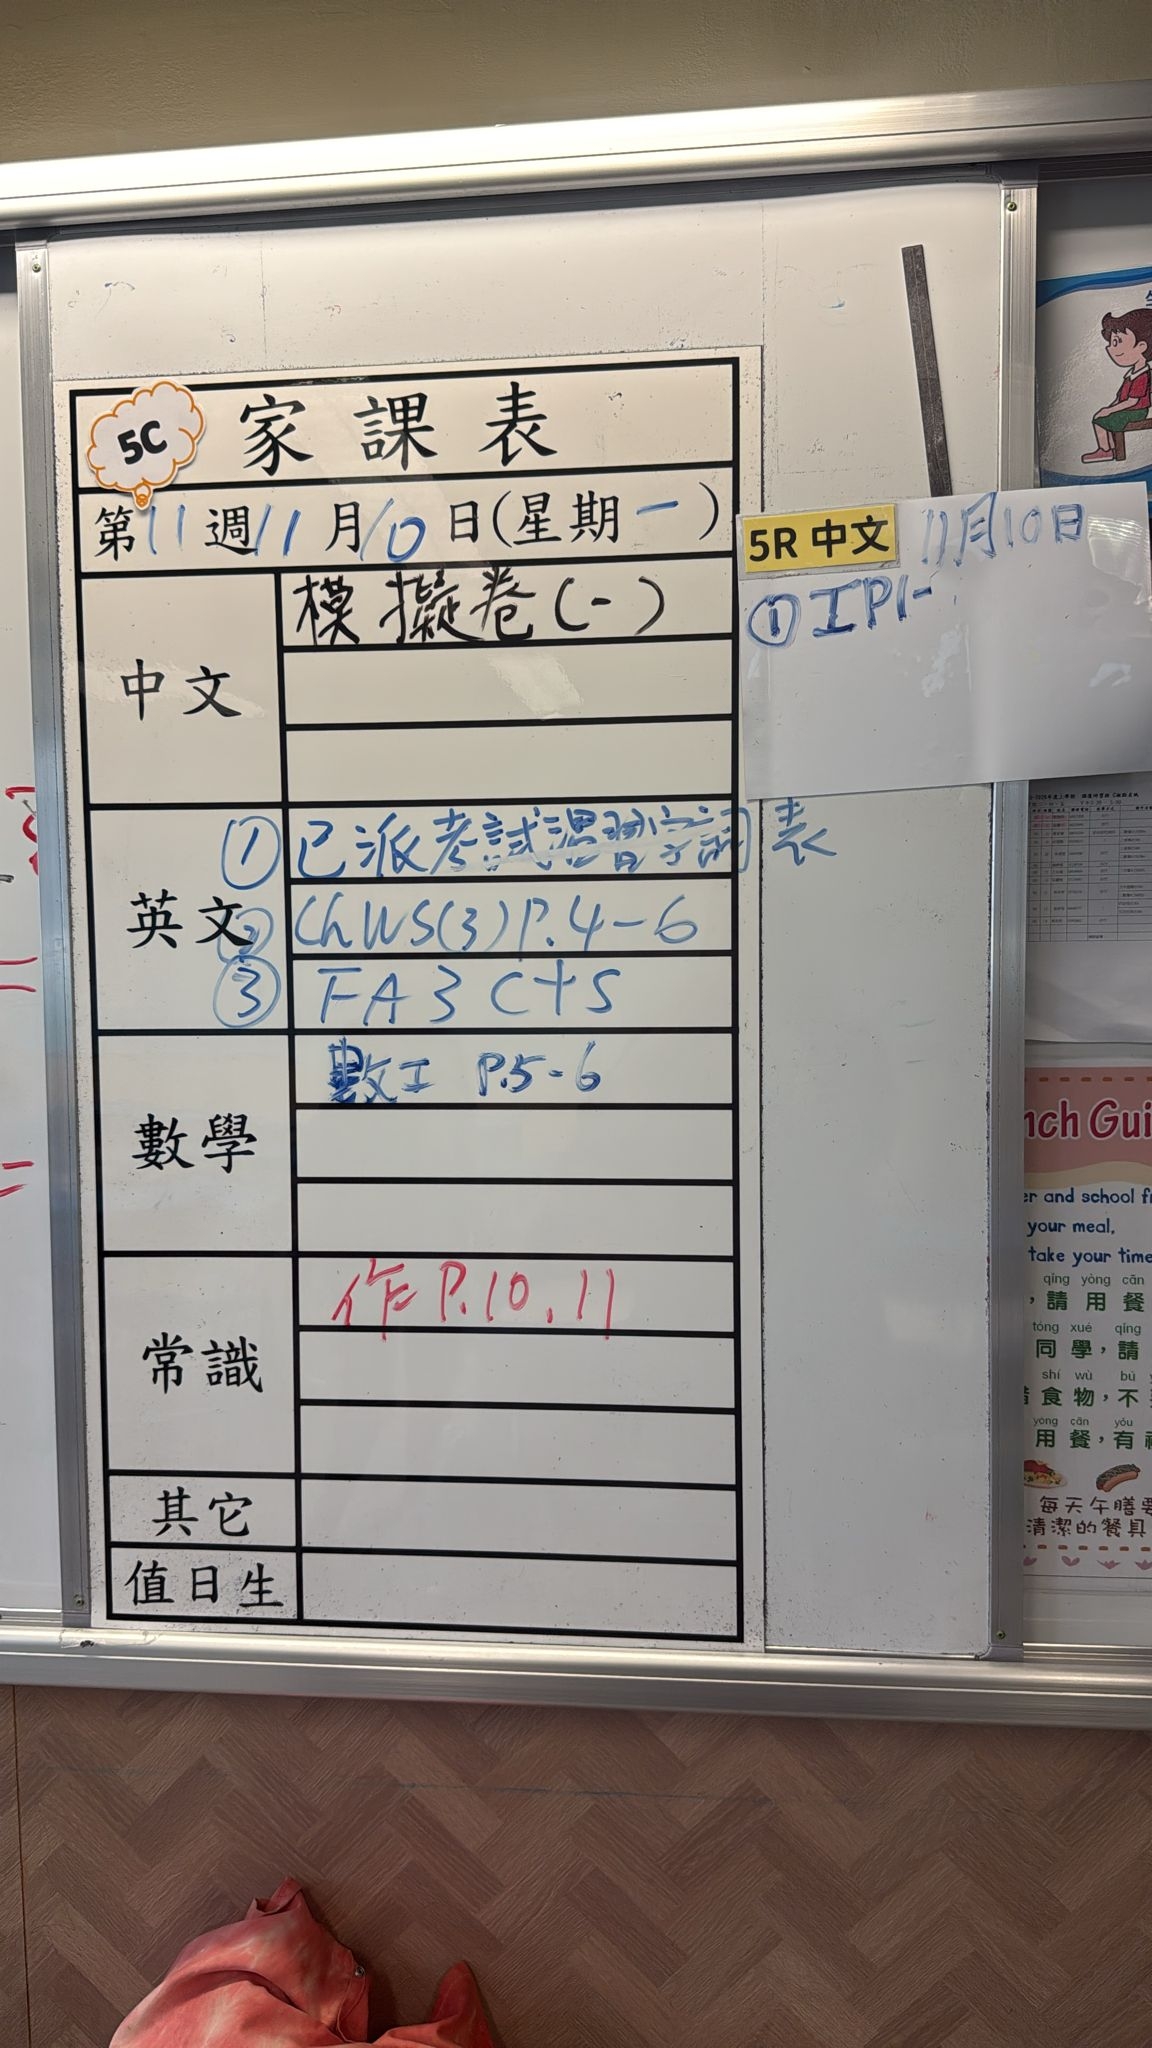 5C 家課表
第11週11月10日(星期一)
中文
模擬卷(一)
英文
①已派考試溫習字詞表
② Ch WS(3) P.4-6
③ FA3 C+S
數學
數工 P.5-6
常識
作 P.10, 11
其它
值日生
5R 中文 11月10日
① 工P1-
nch Gui
er and school f
your meal,
take your time
qǐng yòng cān
，請用餐
tóng xué qǐng
同學，請
shí wù bù
食物，不
yòng cān yǒu
用餐，有
每天午膳要
清潔的餐具